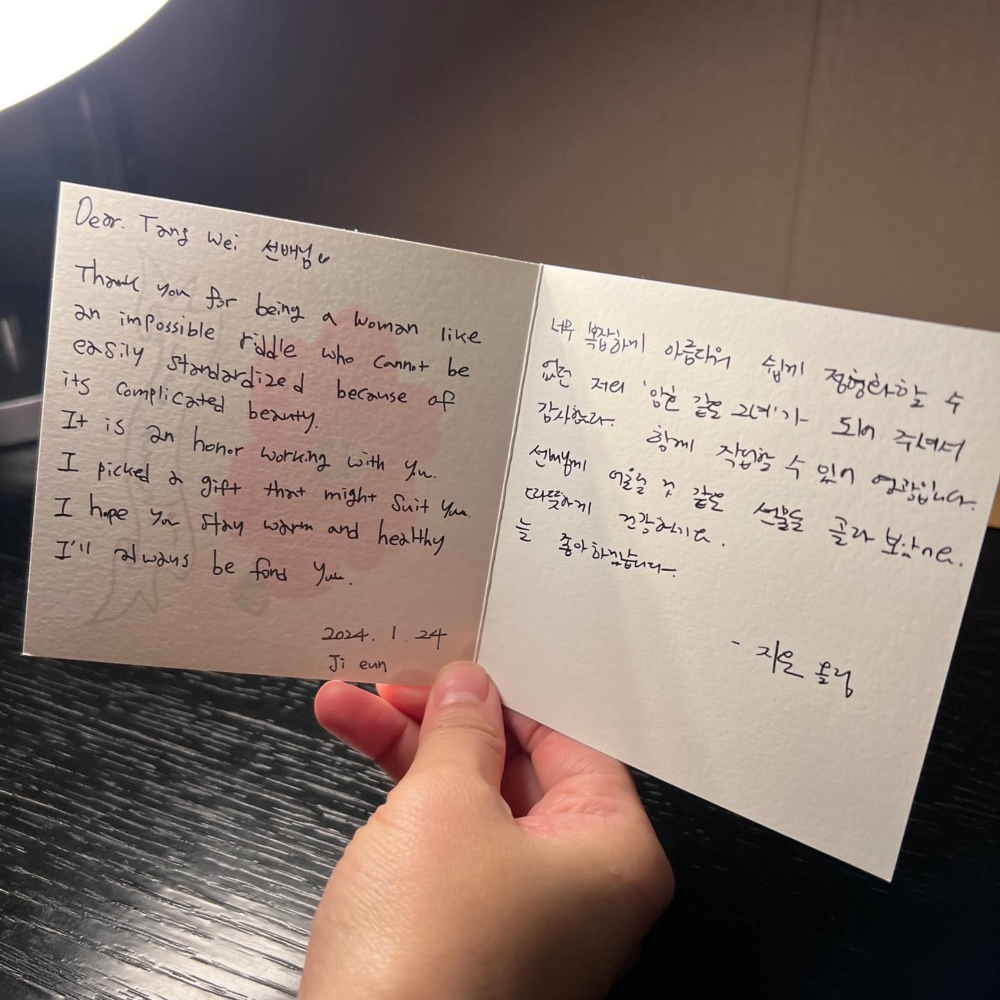 Dear. Tang Wei 선배님
Thank you for being a woman like
an impossible riddle who cannot be
easily standardized because of
its complicated beauty.
It is an honor working with you.
I picked a gift that might suit you.
I hope you stay warm and healthy
I'll always be fond you.
2024. 1. 24
Ji eun
너무 복잡하게 아름다워 쉽게 정형화할 수
없던 저의 '암호 같은 그녀'가 되어 주셔서
감사해요. 함께 작업할 수 있어 영광입니다.
선배님께 어울릴 것 같은 선물을 골라 보았어요.
따뜻하게 건강하세요.
늘 좋아하겠습니다.
- 지은 올림